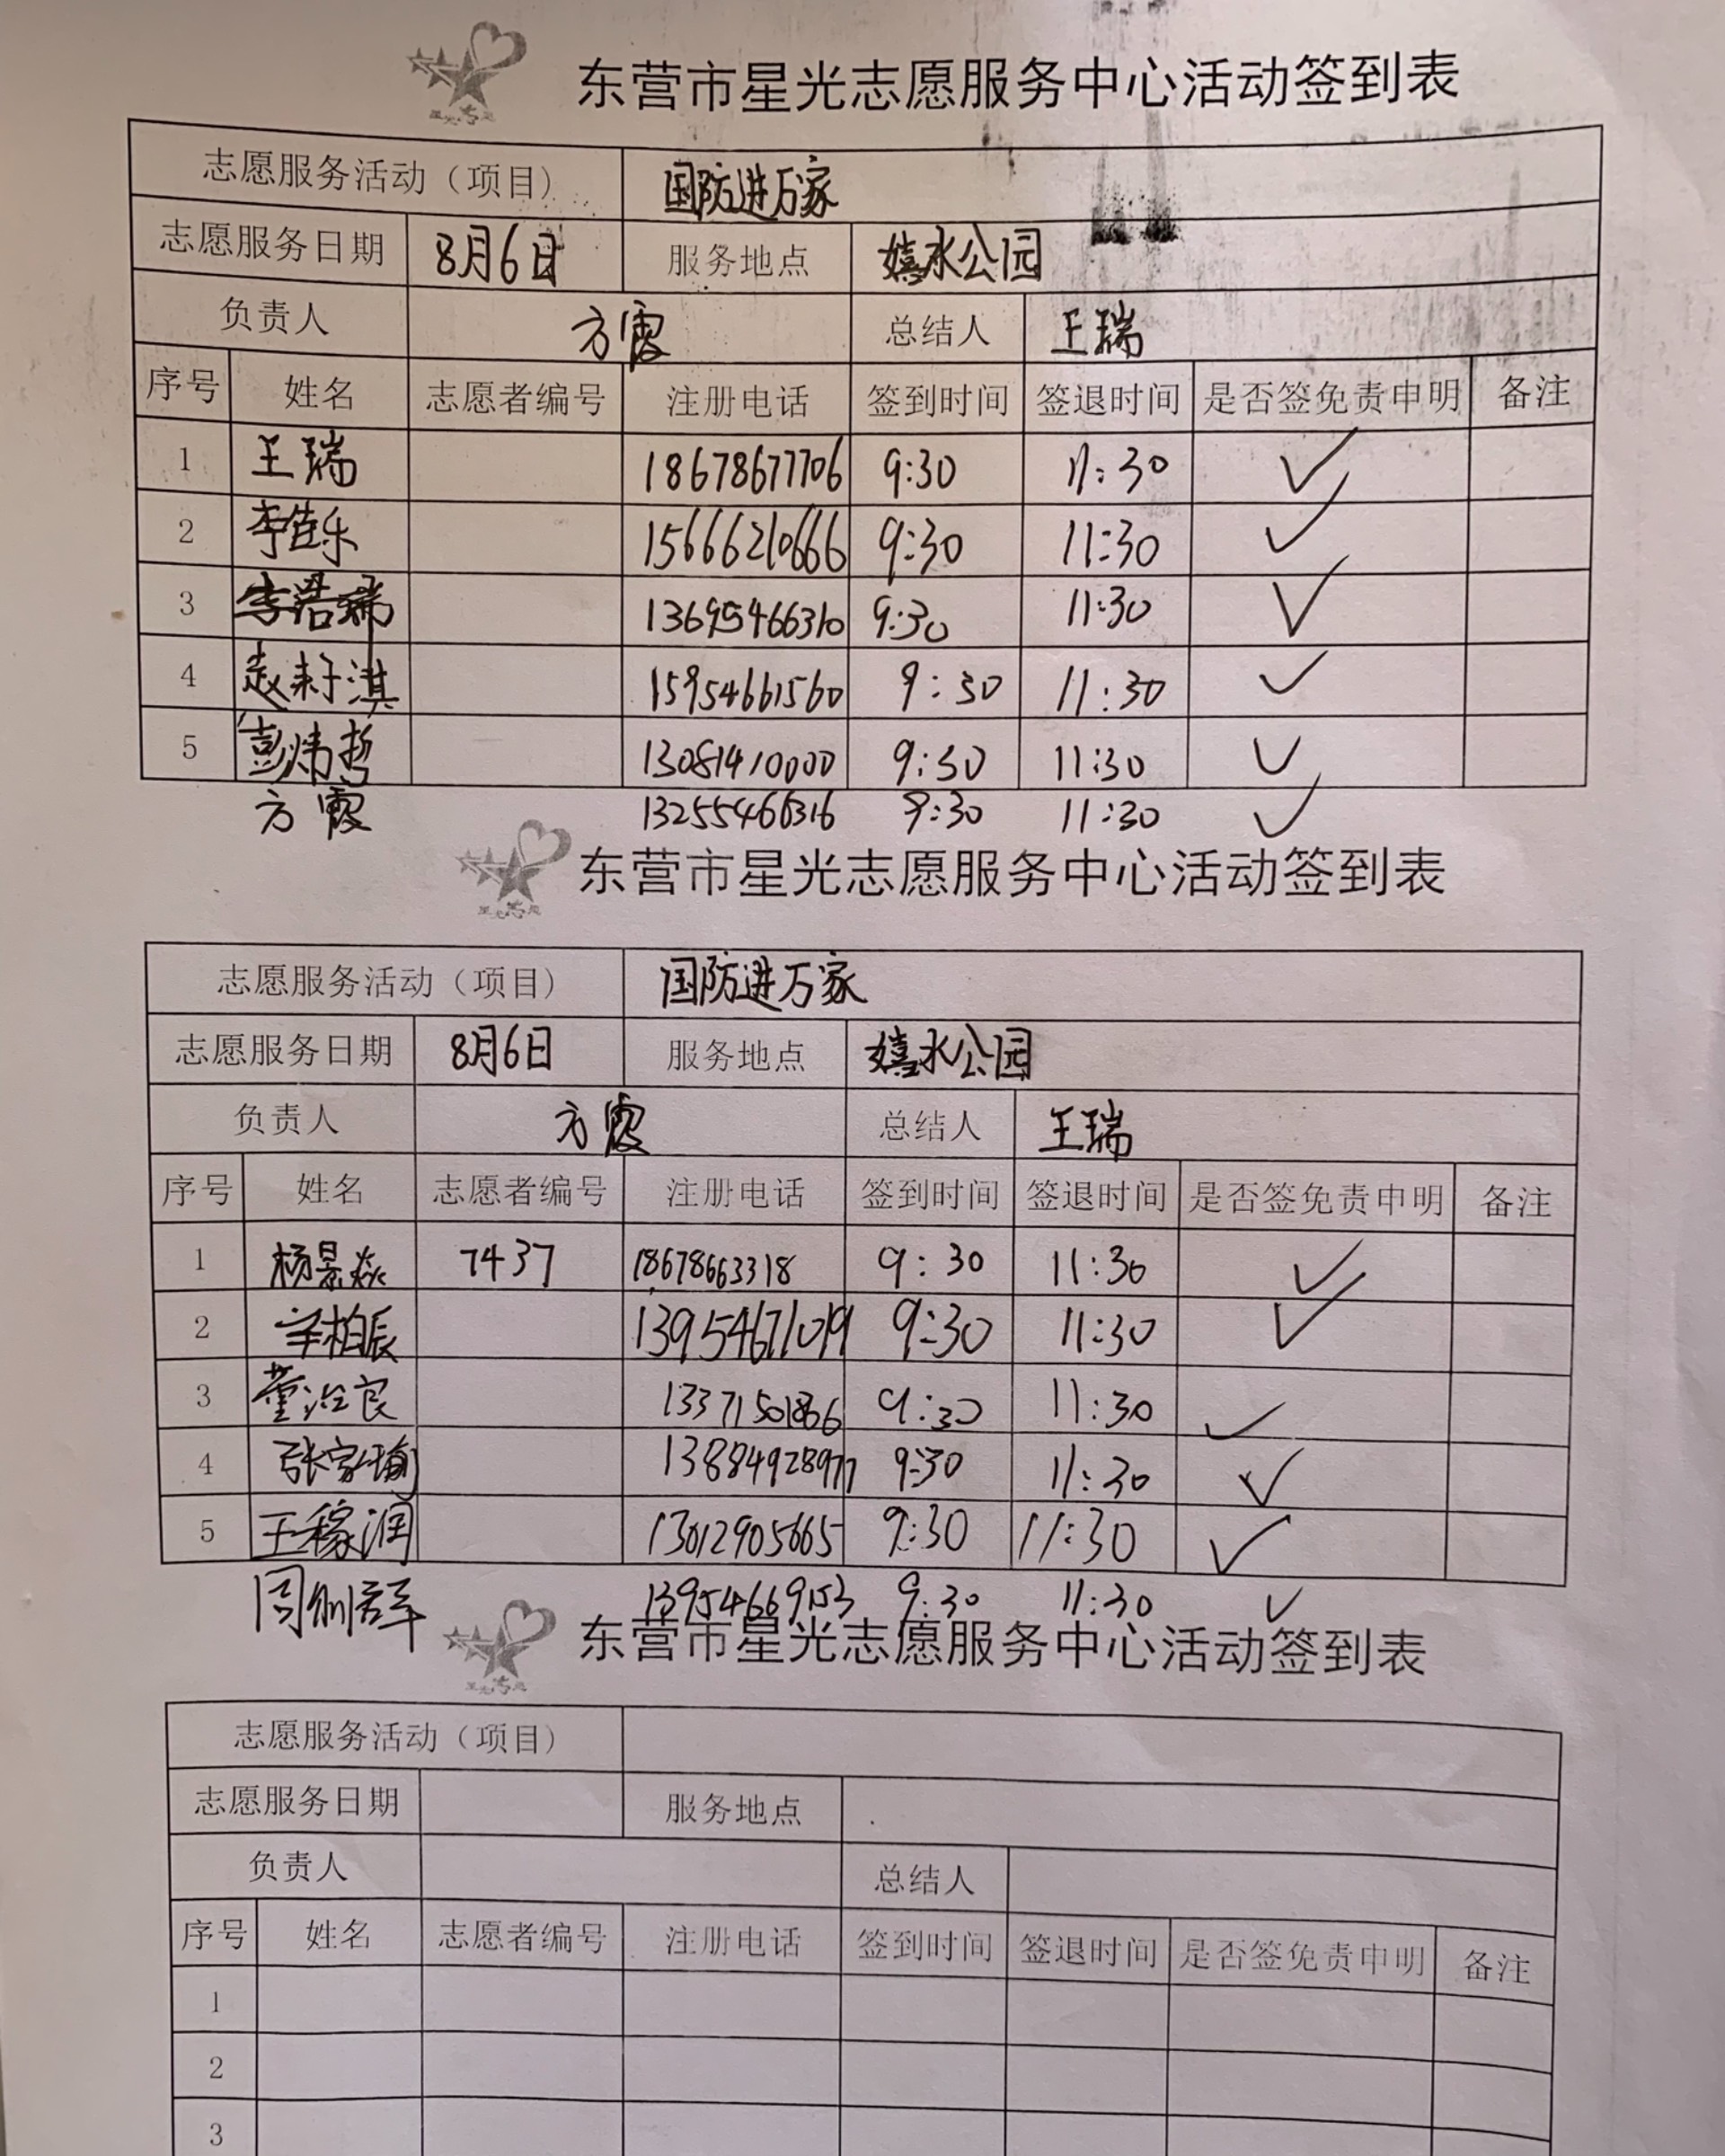 东营市星光志愿服务中心活动签到表
志愿服务活动（项目） 国防进万家
志愿服务日期 8月6日 服务地点 嬉水公园
负责人 方霞 总结人 王瑞
序号 姓名 志愿者编号 注册电话 签到时间 签退时间 是否签免责申明 备注
1 王瑞 18678677706 9:30 11:30 ✓
2 李佳乐 15666210666 9:30 11:30 ✓
3 李浩瑞 13695466310 9:30 11:30 ✓
4 赵耔淇 15954661560 9:30 11:30 ✓
5 彭炜哲 13081410000 9:30 11:30 ✓
方霞 13255466316 9:30 11:30 ✓
东营市星光志愿服务中心活动签到表
志愿服务活动（项目） 国防进万家
志愿服务日期 8月6日 服务地点 嬉水公园
负责人 方霞 总结人 王瑞
序号 姓名 志愿者编号 注册电话 签到时间 签退时间 是否签免责申明 备注
1 杨景焱 7437 18678663318 9:30 11:30 ✓
2 辛柏辰 13954671019 9:30 11:30 ✓
3 董治良 9:30 11:30 ✓
4 张家瑜 13884928977 9:30 11:30 ✓
5 王稼润 13012905665 9:30 11:30 ✓
13954669153 9:30 11:30 ✓
东营市星光志愿服务中心活动签到表
志愿服务活动（项目）
志愿服务日期 服务地点
负责人 总结人
序号 姓名 志愿者编号 注册电话 签到时间 签退时间 是否签免责申明 备注
1
2
3